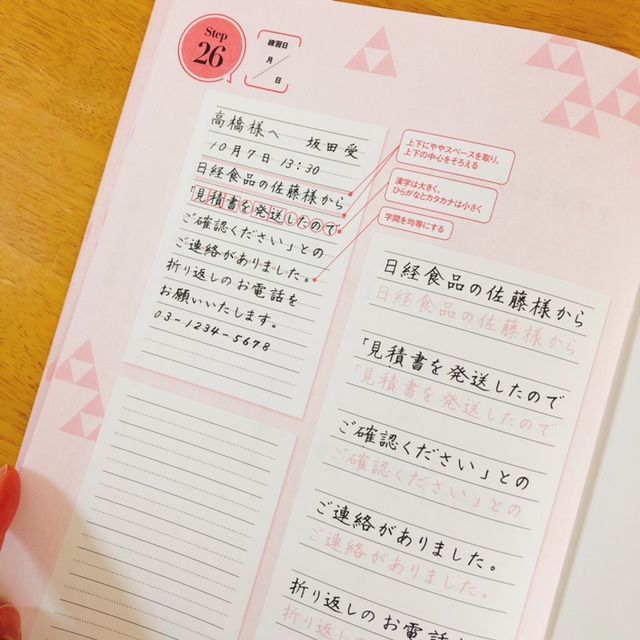 Step
26
練習日
月
日
高橋様へ 坂田受
10月7日 13:30
日経食品の佐藤様から
「見積書を発送したので
ご確認ください」との
ご連絡がありました。
折り返しのお電話を
お願いいたします。
03-1234-5678
上下にややスペースを取り、
上下の中心をそろえる
漢字は大きく、
ひらがなとカタカナは小さく
字間を均等にする
日経食品の佐藤様から
日経食品の佐藤様から
「見積書を発送したので
「見積書を発送したので
ご確認ください」との
ご確認ください」との
ご連絡がありました。
ご連絡がありました。
折り返しのお電話
折り返しのお電